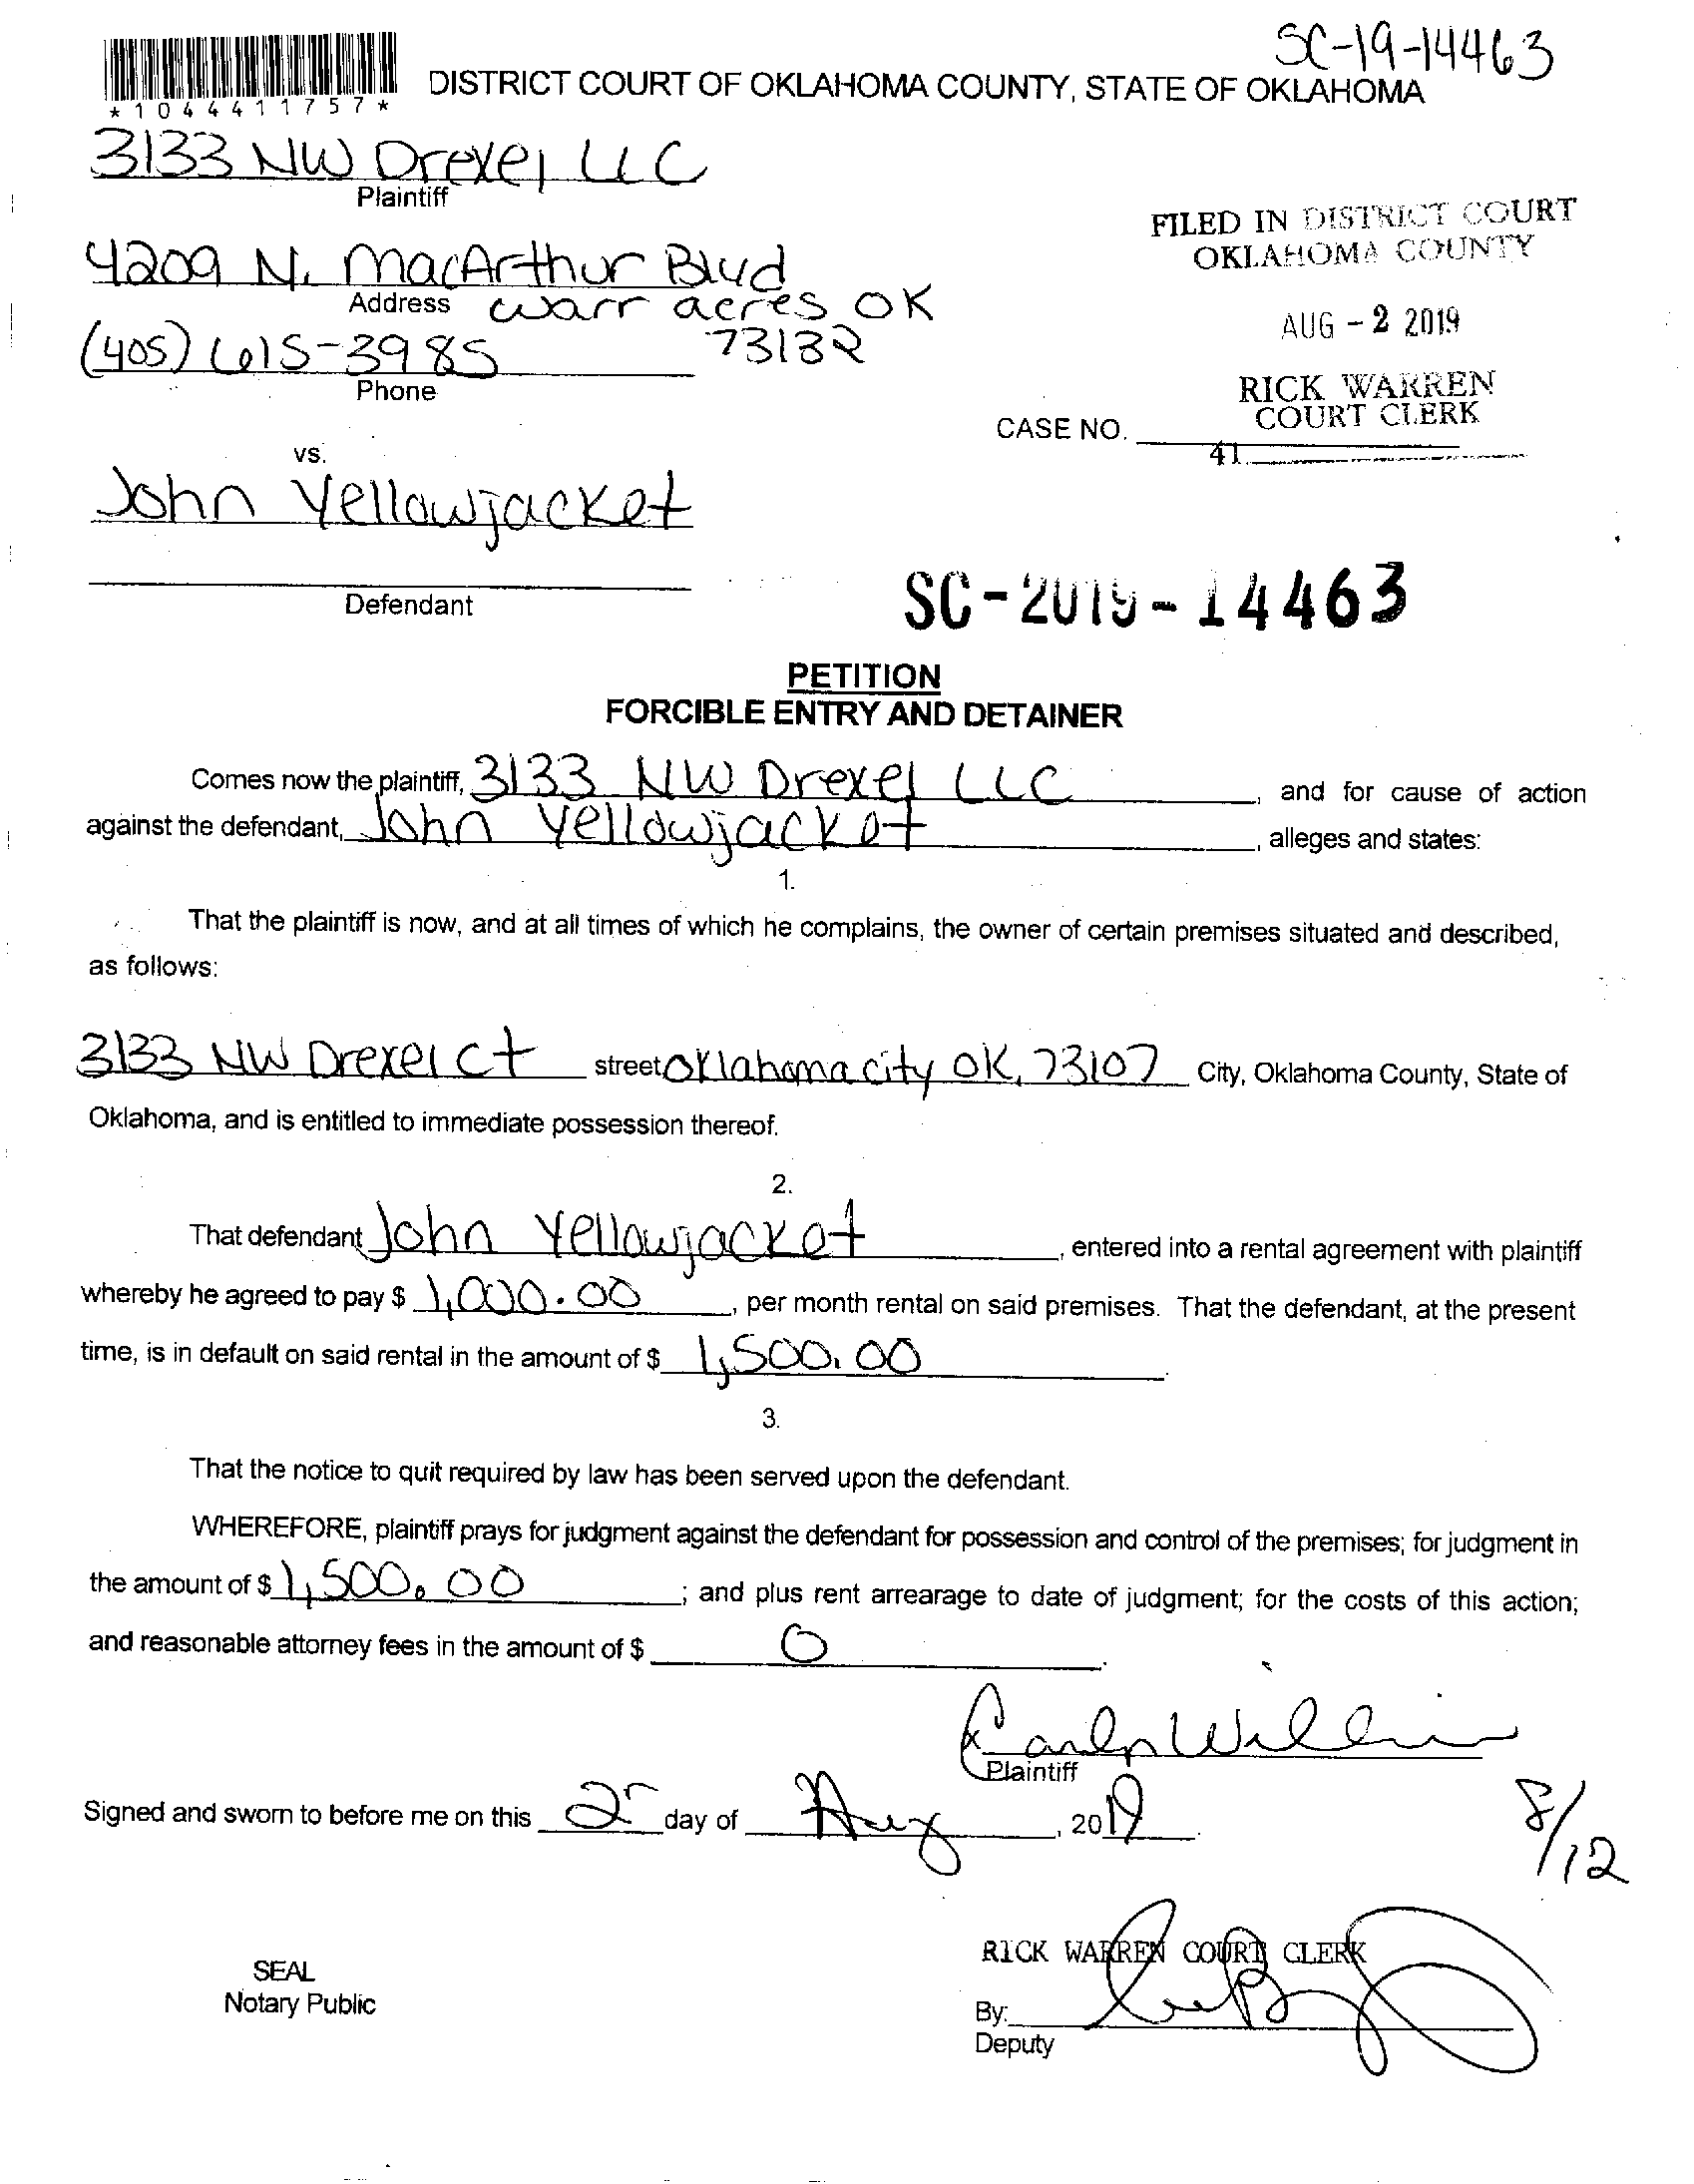 SC-19-14463
*1044411757*
DISTRICT COURT OF OKLAHOMA COUNTY, STATE OF OKLAHOMA
3133 NW Drexel LLC
Plaintiff
FILED IN DISTRICT COURT
OKLAHOMA COUNTY
4209 N. MacArthur Blvd
Address warr acres OK
73132
AUG - 2 2019
(405) 615-3985
Phone
RICK WARREN
COURT CLERK
CASE NO.
41
vs.
John Yellowjacket
Defendant
SC-2019-14463
PETITION
FORCIBLE ENTRY AND DETAINER
Comes now the plaintiff, 3133 NW Drexel LLC, and for cause of action
against the defendant, John Yellowjacket, alleges and states:
1.
That the plaintiff is now, and at all times of which he complains, the owner of certain premises situated and described,
as follows:
3133 NW Drexel Ct street Oklahoma city OK, 73107 City, Oklahoma County, State of
Oklahoma, and is entitled to immediate possession thereof.
2.
That defendant John Yellowjacket, entered into a rental agreement with plaintiff
whereby he agreed to pay $ 1,000.00, per month rental on said premises. That the defendant, at the present
time, is in default on said rental in the amount of $ 1,500.00.
3.
That the notice to quit required by law has been served upon the defendant.
WHEREFORE, plaintiff prays for judgment against the defendant for possession and control of the premises; for judgment in
the amount of $ 1,500.00; and plus rent arrearage to date of judgment; for the costs of this action;
and reasonable attorney fees in the amount of $ 0.
Plaintiff
Signed and sworn to before me on this 2 day of Aug, 2019.
8/12
RICK WARREN COURT CLERK
SEAL
Notary Public
By:
Deputy